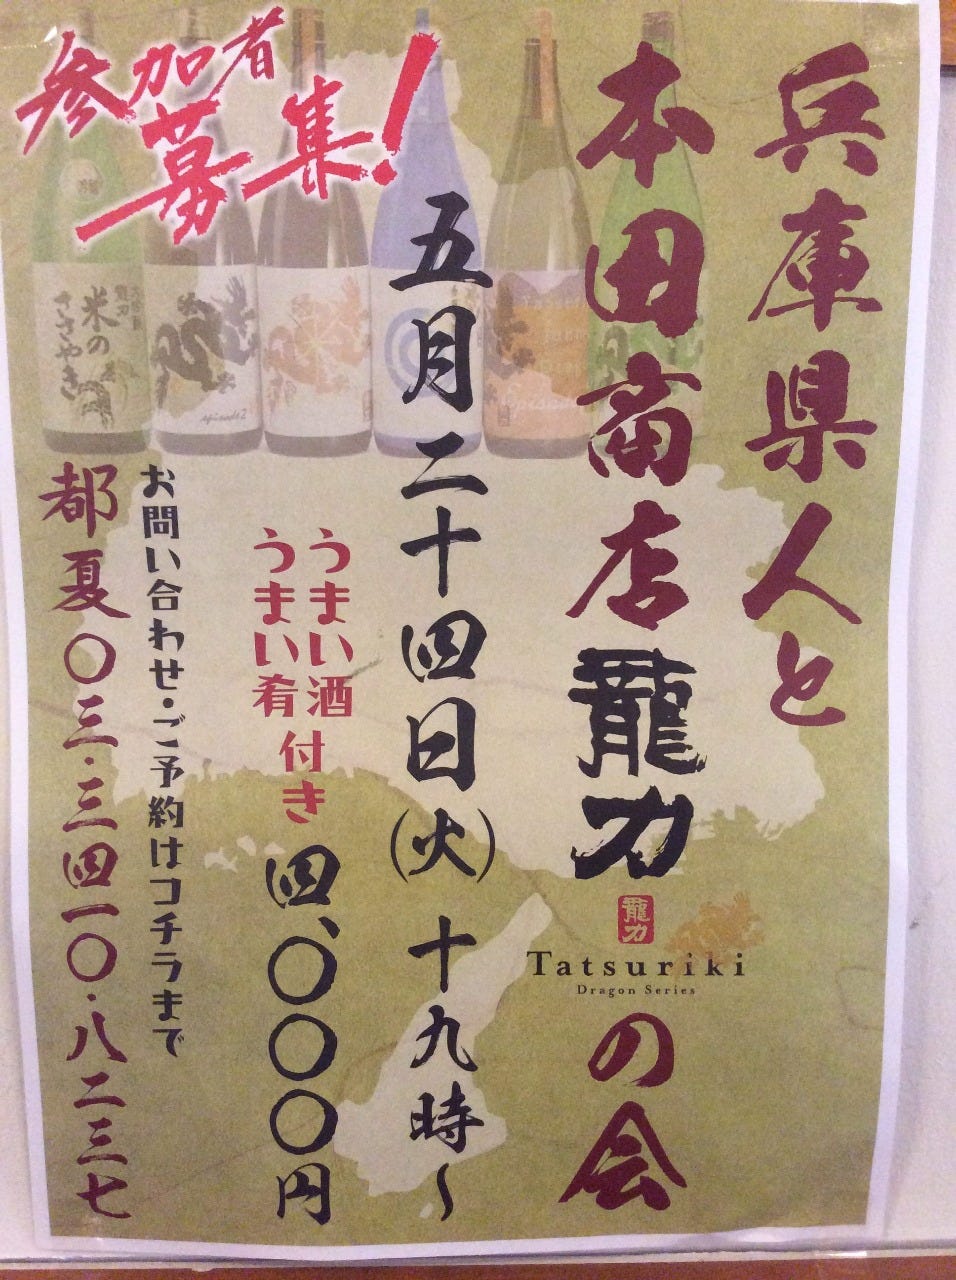 兵庫県人と
本田商店龍力
龍力
Tatsuriki
Dragon Series
の会
参加者
募集!
五月二十四日(火)十九時～
うまい酒
うまい肴
付き
四、〇〇〇円
お問い合わせ・ご予約はコチラまで
都夏〇三・三四一〇・八二三七
米の
ささやき
episode2